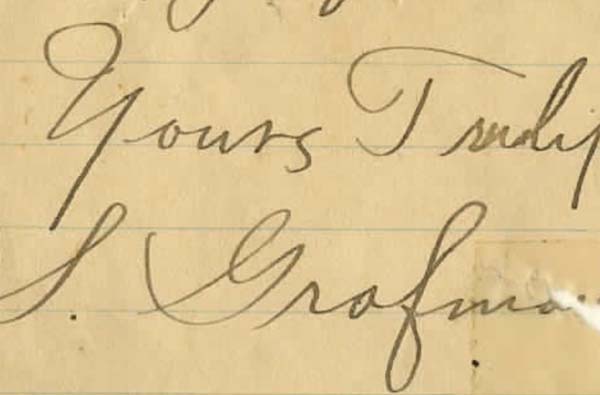 Yours Truly
S. Grofma